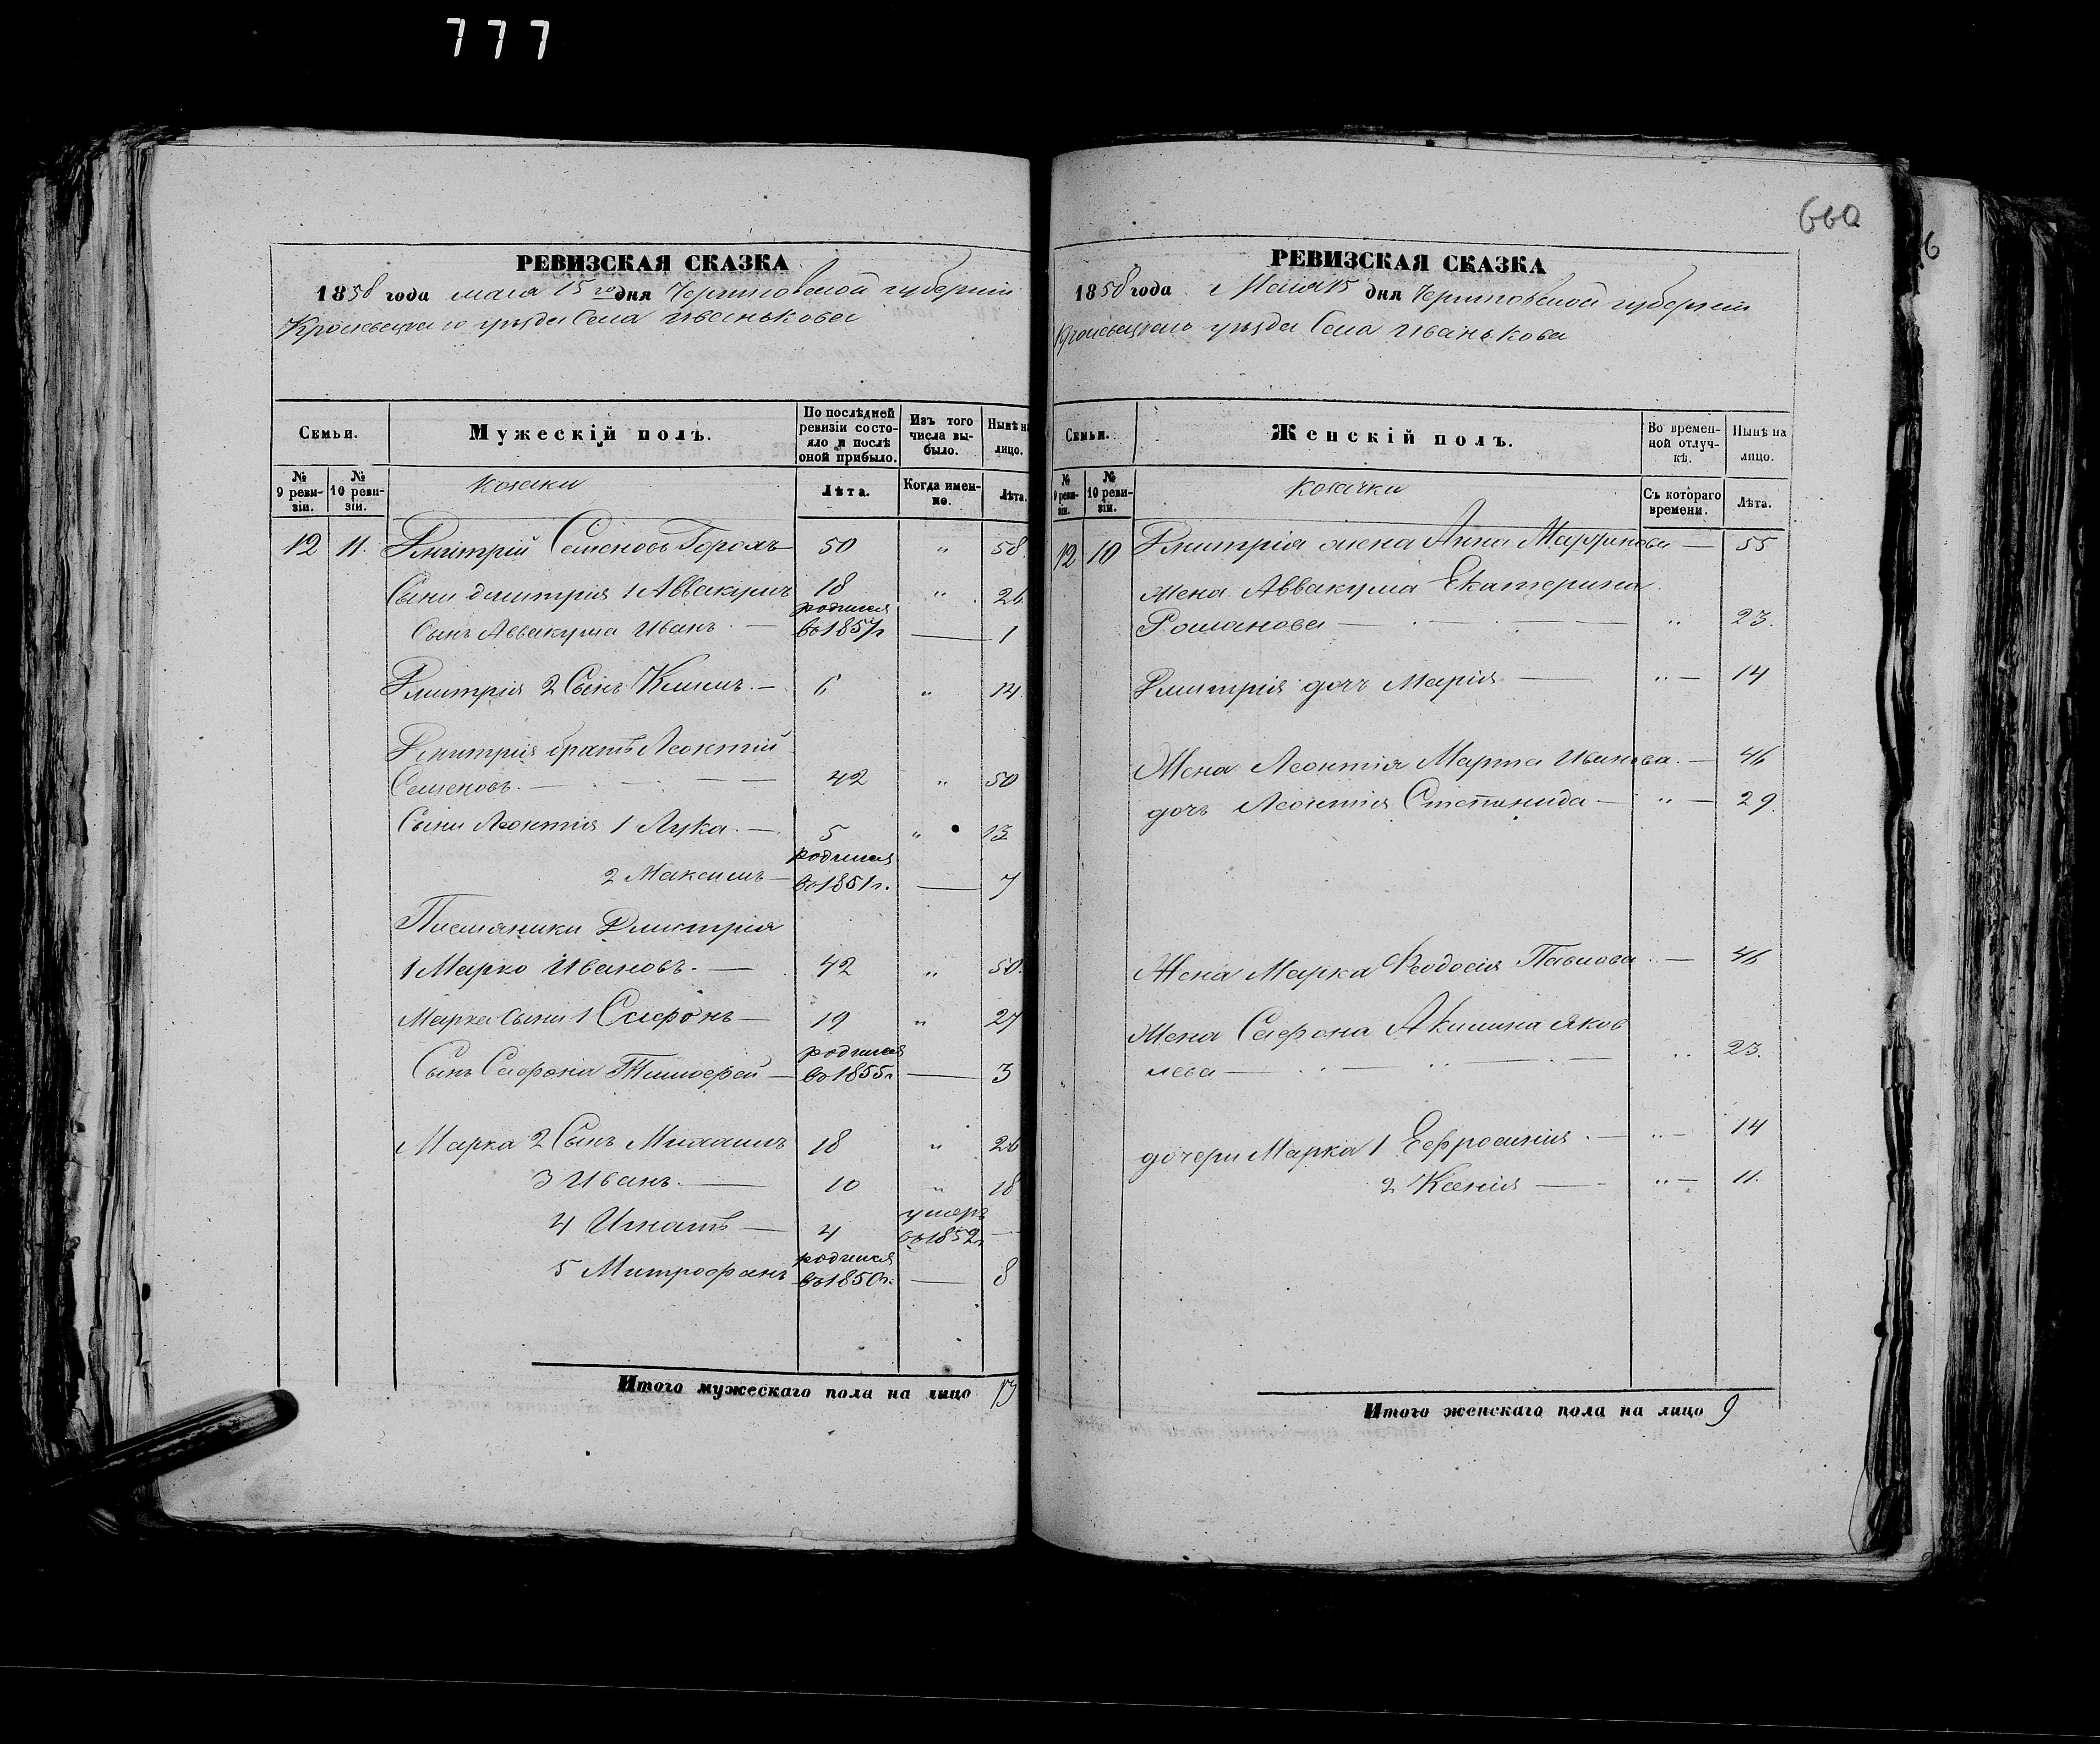 777
660
6
РЕВИЗСКАЯ СКАЗКА
1858 года мая 15го дня Черниговской губерніи
Кролевецкаго уезда Села Иванькова
Семьи.
Мужескій полъ.
По послѣдней ревизіи состояло и послѣ оной прибыло.
Изъ того числа выбыло.
Нынѣ на лицо.
№ 9 ревизіи.
№ 10 ревизіи.
козаки
Лѣта.
Когда именно.
Лѣта.
12 11. Дмитрій Семеновъ Горохъ 50 " 58.
Сыни дмитрія 1 Аввакумъ 18 " 26
Сынъ Аввакума Иванъ. — родился во 1857г — 1
Дмитрія 2 Сынъ Климъ. — 6 " 14
Дмитрія братъ Леонтій
Семеновъ. — 42 " 50
Сыни Леонтія 1 Лука. — 5 " 13
2 Максимъ — родился во 1851г. — 7
Племяники Дмитрія
1 Марко Ивановъ. — 42 " 50.
Марка Сыни 1 Сафонъ — 19 " 27
Сынъ Сафона Тимофей — родился во 1855г — 3
Марка 2 Сынъ Михаилъ 18 " 26
3 Иванъ. — 10 " 18
4 Игнатъ — 4 умеръ во 1852г —
5 Митрофанъ родился во 1850г. — 8
Итого мужескаго пола на лицо 13
РЕВИЗСКАЯ СКАЗКА
1858 года Мая 15 дня Черниговской губерніи
Кролевецкаго уезда Села Иванькова
Семьи.
Женскій полъ.
Во временной отлучкѣ.
Нынѣ на лицо.
№ 9 ревизіи.
№ 10 ревизіи.
козачки
Съ котораго времени.
Лѣта.
12 10 Дмитрія жена Анна — 55
Жена Аввакума Екатерина
Романова — " 23.
Дмитрія дочъ Марія — " — 14
Жена Леонтія Марта Иванова. — 46
дочъ Леонтія Степанида — " — 29.
Жена Марка Феодосія Павлова — 46
Жена Сафона Акилина Яков
лева — " 23.
дочери Марка 1 Еефросинія. — " — 14
2 Ксенія — " — 11.
Итого женскаго пола на лицо 9